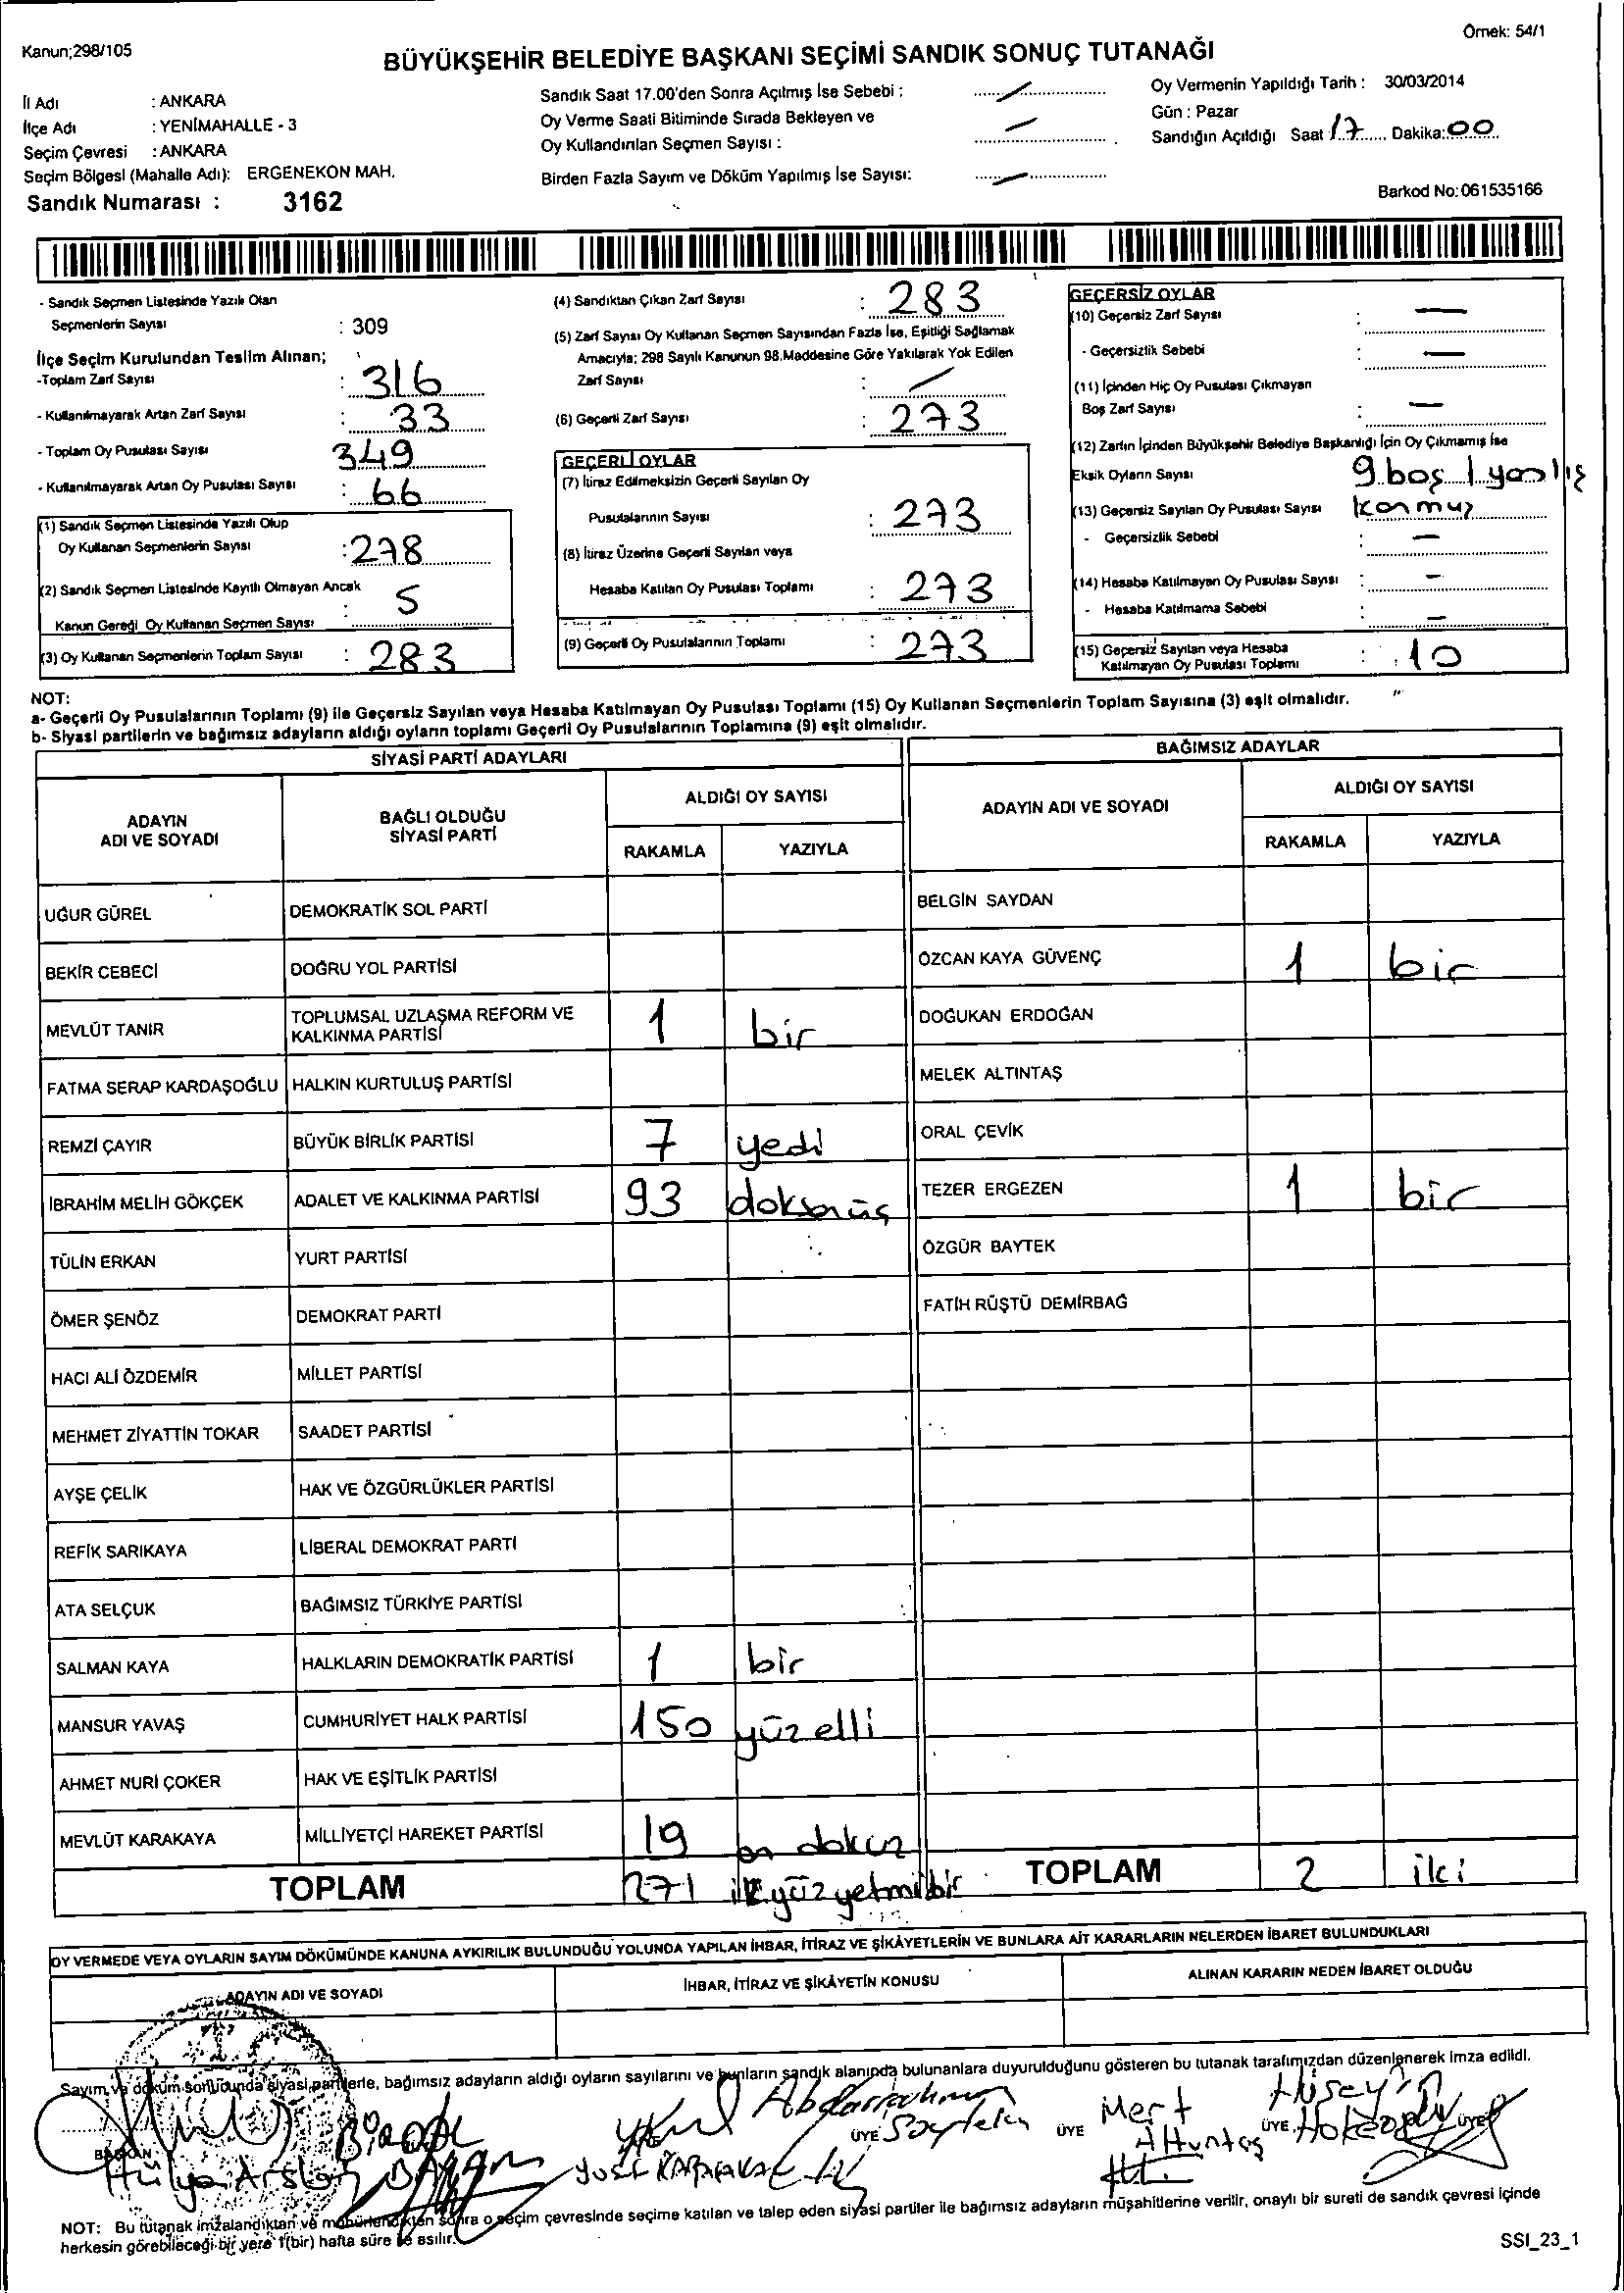 Kanun;298/105
Örnek: 54/1
BÜYÜKŞEHİR BELEDİYE BAŞKANI SEÇİMİ SANDIK SONUÇ TUTANAĞI
İl Adı : ANKARA
İlçe Adı : YENİMAHALLE - 3
Seçim Çevresi : ANKARA
Seçim Bölgesi (Mahalle Adı): ERGENEKON MAH.
Sandık Numarası : 3162
Sandık Saat 17.00'den Sonra Açılmış İse Sebebi : /
Oy Verme Saati Bitiminde Sırada Bekleyen ve
Oy Kullandırılan Seçmen Sayısı : —
Birden Fazla Sayım ve Döküm Yapılmış İse Sayısı: —
Oy Vermenin Yapıldığı Tarih : 30/03/2014
Gün : Pazar
Sandığın Açıldığı Saat 17 Dakika: 00
Barkod No: 061535166
- Sandık Seçmen Listesinde Yazılı Olan
Seçmenlerin Sayısı : 309
İlçe Seçim Kurulundan Teslim Alınan;
-Toplam Zarf Sayısı : 316
- Kullanılmayarak Artan Zarf Sayısı : 33
- Toplam Oy Pusulası Sayısı 349
- Kullanılmayarak Artan Oy Pusulası Sayısı : 66
(1) Sandık Seçmen Listesinde Yazılı Olup
Oy Kullanan Seçmenlerin Sayısı : 278
(2) Sandık Seçmen Listesinde Kayıtlı Olmayan Ancak
Kanun Gereği Oy Kullanan Seçmen Sayısı : 5
(3) Oy Kullanan Seçmenlerin Toplam Sayısı : 283
(4) Sandıktan Çıkan Zarf Sayısı : 283
(5) Zarf Sayısı Oy Kullanan Seçmen Sayısından Fazla İse, Eşitliği Sağlamak
Amacıyla; 298 Sayılı Kanunun 98.Maddesine Göre Yakılarak Yok Edilen
Zarf Sayısı : /
(6) Geçerli Zarf Sayısı : 273
GEÇERLİ OYLAR
(7) İtiraz Edilmeksizin Geçerli Sayılan Oy
Pusulalarının Sayısı : 273
(8) İtiraz Üzerine Geçerli Sayılan veya
Hesaba Katılan Oy Pusulası Toplamı : 273
(9) Geçerli Oy Pusulalarının Toplamı : 273
GEÇERSİZ OYLAR
(10) Geçersiz Zarf Sayısı : —
- Geçersizlik Sebebi : —
(11) İçinden Hiç Oy Pusulası Çıkmayan
Boş Zarf Sayısı : —
(12) Zarfın İçinden Büyükşehir Belediye Başkanlığı İçin Oy Çıkmamış İse
Eksik Oyların Sayısı 9 boş 1 yanlış
(13) Geçersiz Sayılan Oy Pusulası Sayısı
- Geçersizlik Sebebi : —
(14) Hesaba Katılmayan Oy Pusulası Sayısı : —
- Hesaba Katılmama Sebebi : —
(15) Geçersiz Sayılan veya Hesaba
Katılmayan Oy Pusulası Toplamı : 10
NOT:
a- Geçerli Oy Pusulalarının Toplamı (9) ile Geçersiz Sayılan veya Hesaba Katılmayan Oy Pusulası Toplamı (15) Oy Kullanan Seçmenlerin Toplam Sayısına (3) eşit olmalıdır.
b- Siyasi partilerin ve bağımsız adayların aldığı oyların toplamı Geçerli Oy Pusulalarının Toplamına (9) eşit olmalıdır.
SİYASİ PARTİ ADAYLARI
ADAYIN ADI VE SOYADI
BAĞLI OLDUĞU SİYASİ PARTİ
ALDIĞI OY SAYISI
RAKAMLA YAZIYLA
UĞUR GÜREL DEMOKRATİK SOL PARTİ
BEKİR CEBECİ DOĞRU YOL PARTİSİ
MEVLÜT TANIR TOPLUMSAL UZLAŞMA REFORM VE KALKINMA PARTİSİ 1 bir
FATMA SERAP KARDAŞOĞLU HALKIN KURTULUŞ PARTİSİ
REMZİ ÇAYIR BÜYÜK BİRLİK PARTİSİ 7 yedi
İBRAHİM MELİH GÖKÇEK ADALET VE KALKINMA PARTİSİ 93 doksanüç
TÜLİN ERKAN YURT PARTİSİ
ÖMER ŞENÖZ DEMOKRAT PARTİ
HACI ALİ ÖZDEMİR MİLLET PARTİSİ
MEHMET ZİYATTİN TOKAR SAADET PARTİSİ
AYŞE ÇELİK HAK VE ÖZGÜRLÜKLER PARTİSİ
REFİK SARIKAYA LİBERAL DEMOKRAT PARTİ
ATA SELÇUK BAĞIMSIZ TÜRKİYE PARTİSİ
SALMAN KAYA HALKLARIN DEMOKRATİK PARTİSİ 1 bir
MANSUR YAVAŞ CUMHURİYET HALK PARTİSİ 150 yüzelli
AHMET NURİ ÇOKER HAK VE EŞİTLİK PARTİSİ
MEVLÜT KARAKAYA MİLLİYETÇİ HAREKET PARTİSİ 19 on dokuz
TOPLAM 271 ikiyüzyetmişbir
BAĞIMSIZ ADAYLAR
ADAYIN ADI VE SOYADI
ALDIĞI OY SAYISI
RAKAMLA YAZIYLA
BELGİN SAYDAN
ÖZCAN KAYA GÜVENÇ 1 bir
DOĞUKAN ERDOĞAN
MELEK ALTINTAŞ
ORAL ÇEVİK
TEZER ERGEZEN 1 bir
ÖZGÜR BAYTEK
FATİH RÜŞTÜ DEMİRBAĞ
TOPLAM 2 iki
OY VERMEDE VEYA OYLARIN SAYIM DÖKÜMÜNDE KANUNA AYKIRILIK BULUNDUĞU YOLUNDA YAPILAN İHBAR, İTİRAZ VE ŞİKÂYETLERİN VE BUNLARA AİT KARARLARIN NELERDEN İBARET BULUNDUKLARI
ADAYIN ADI VE SOYADI
İHBAR, İTİRAZ VE ŞİKÂYETİN KONUSU
ALINAN KARARIN NEDEN İBARET OLDUĞU
Sayım ve döküm sonucunda siyasi partilerle, bağımsız adayların aldığı oyların sayılarını ve bunların sandık alanında bulunanlara duyurulduğunu gösteren bu tutanak tarafımızdan düzenlenerek imza edildi.
BAŞKAN
Hülya Arslan
Abdurrahman
ÜYE
ÜYE
Mert
Altuntaş
ÜYE
Hüseyin
ÜYE
NOT: Bu tutanak imzalandıktan ve mühürlendikten sonra o seçim çevresinde seçime katılan ve talep eden siyasi partiler ile bağımsız adayların müşahitlerine verilir, onaylı bir sureti de sandık çevresi içinde
herkesin görebileceği bir yere 1(bir) hafta süre ile asılır.
SSI_23_1